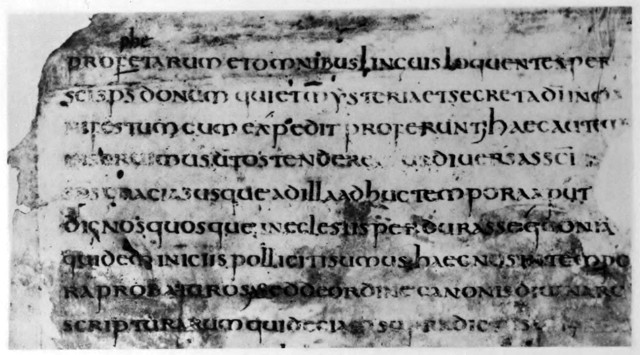 phe
profetarum et omnibus linguis loquentes per
sci sps donum qui et mysteria et secreta di in
nifestum cum expedit proferunt; haec autem
mus ut ostendere diversas sci
sps gracias usque ad illa adhuc tempora aput
dignos quosque in eclesiis perdurasse quonia
quidem iniciis polliciti sumus haec nos in tempo
ra probaturos sed de ordine canonis
scripturarum quid etiam